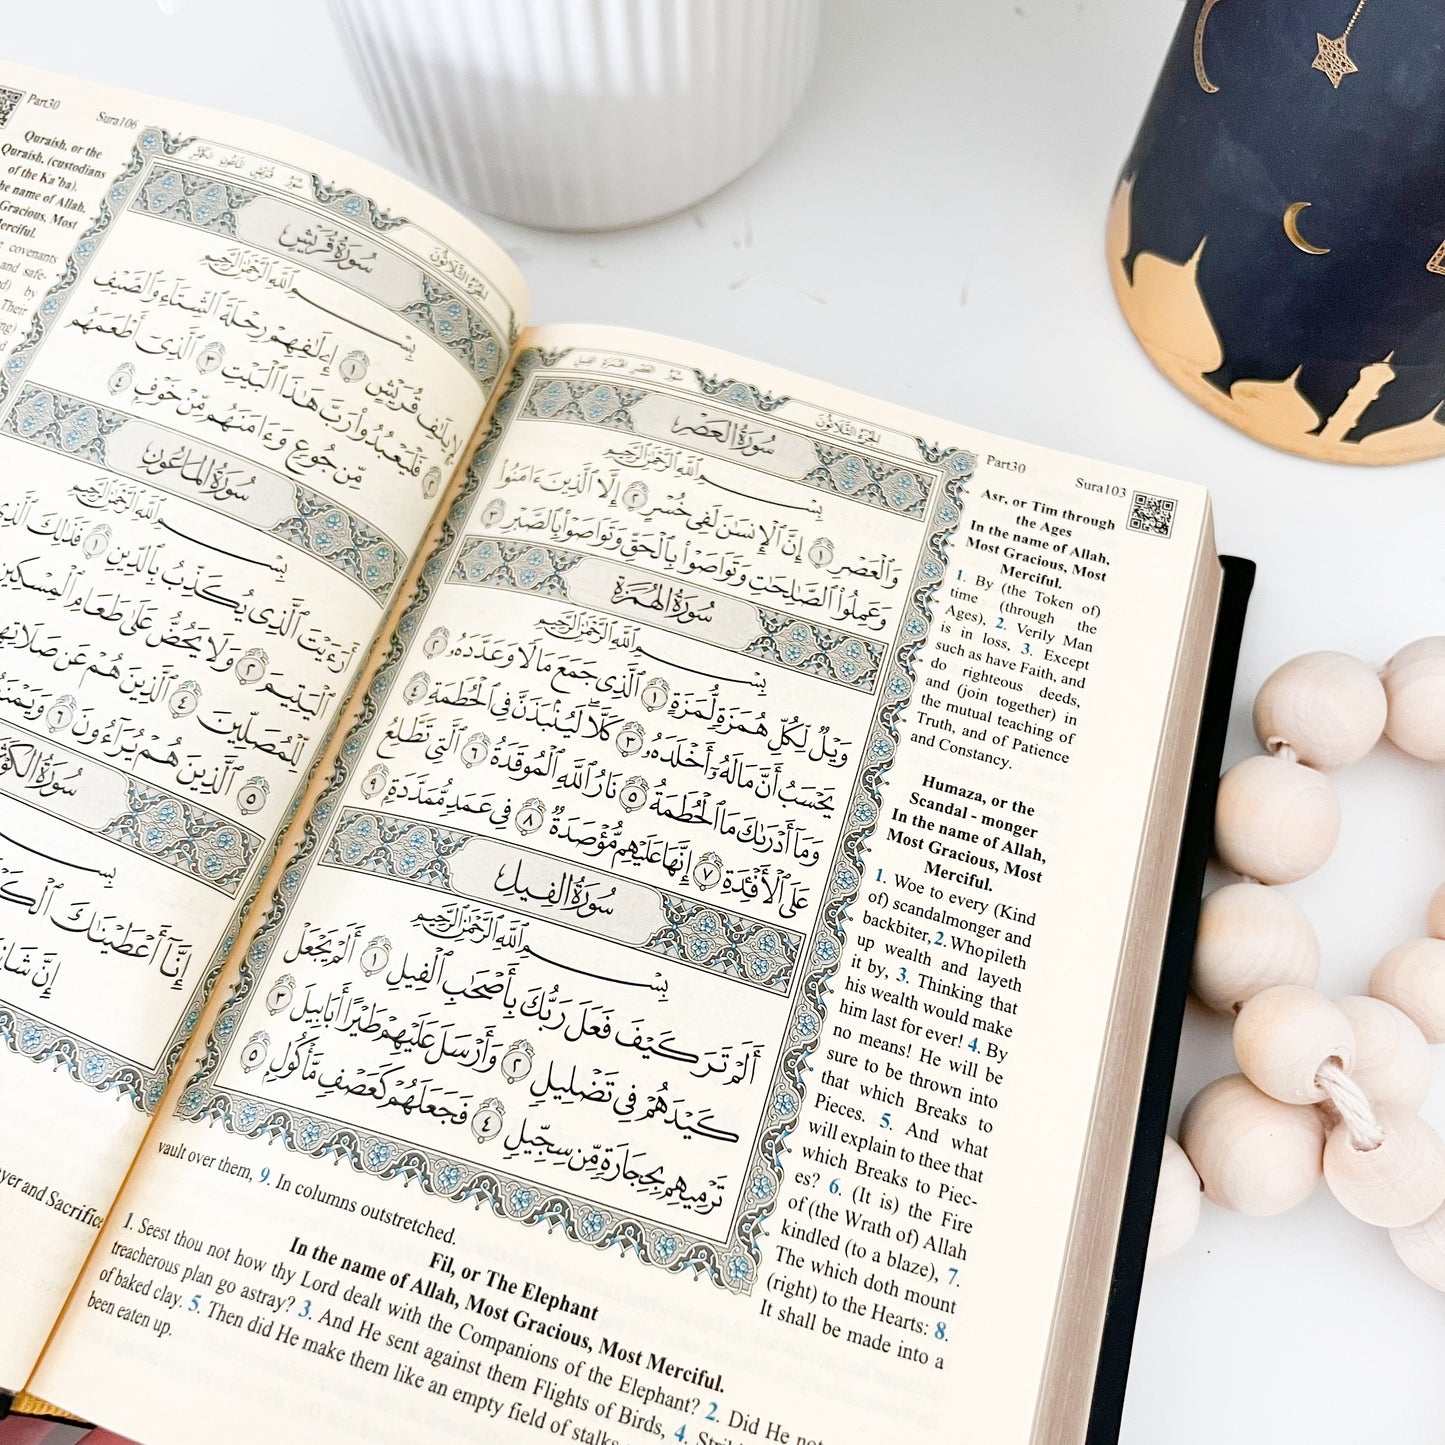 Part30
Sura106
Quraish, or the
Quraish, (custodians
of the Ka'ba).
the name of Allah,
Gracious, Most
Merciful.
covenants
and safe-
by
Their
سُورَةُ قُرَيْشٍ
الجُزْءُ الثَّلَاثُونَ
بِسْمِ ٱللَّهِ ٱلرَّحْمَٰنِ ٱلرَّحِيمِ
لِإِيلَٰفِ قُرَيْشٍ ١ إِۦلَٰفِهِمْ رِحْلَةَ ٱلشِّتَآءِ وَٱلصَّيْفِ
٢ فَلْيَعْبُدُوا۟ رَبَّ هَٰذَا ٱلْبَيْتِ ٣ ٱلَّذِىٓ أَطْعَمَهُم
مِّن جُوعٍ وَءَامَنَهُم مِّنْ خَوْفٍۭ ٤
سُورَةُ المَاعُونِ
بِسْمِ ٱللَّهِ ٱلرَّحْمَٰنِ ٱلرَّحِيمِ
أَرَءَيْتَ ٱلَّذِى يُكَذِّبُ بِٱلدِّينِ ١ فَذَٰلِكَ ٱلَّذِى
ٱلْيَتِيمَ ٢ وَلَا يَحُضُّ عَلَىٰ طَعَامِ ٱلْمِسْكِينِ
لِّلْمُصَلِّينَ ٤ ٱلَّذِينَ هُمْ عَن صَلَاتِهِمْ
٥ ٱلَّذِينَ هُمْ يُرَآءُونَ ٦ وَيَمْنَعُونَ
سُورَةُ الكَوْثَرِ
بِسْمِ
إِنَّآ أَعْطَيْنَٰكَ ٱلْكَوْثَرَ
إِنَّ شَانِئَكَ
Prayer and Sacrifice
سُورَةُ العَصْرِ
الجُزْءُ الثَّلَاثُونَ
بِسْمِ ٱللَّهِ ٱلرَّحْمَٰنِ ٱلرَّحِيمِ
وَٱلْعَصْرِ ١ إِنَّ ٱلْإِنسَٰنَ لَفِى خُسْرٍ ٢ إِلَّا ٱلَّذِينَ ءَامَنُوا۟
وَعَمِلُوا۟ ٱلصَّٰلِحَٰتِ وَتَوَاصَوْا۟ بِٱلْحَقِّ وَتَوَاصَوْا۟ بِٱلصَّبْرِ ٣
سُورَةُ الهُمَزَةِ
بِسْمِ ٱللَّهِ ٱلرَّحْمَٰنِ ٱلرَّحِيمِ
وَيْلٌ لِّكُلِّ هُمَزَةٍ لُّمَزَةٍ ١ ٱلَّذِى جَمَعَ مَالًا وَعَدَّدَهُۥ ٢
يَحْسَبُ أَنَّ مَالَهُۥٓ أَخْلَدَهُۥ ٣ كَلَّا ۖ لَيُنۢبَذَنَّ فِى ٱلْحُطَمَةِ ٤
وَمَآ أَدْرَىٰكَ مَا ٱلْحُطَمَةُ ٥ نَارُ ٱللَّهِ ٱلْمُوقَدَةُ ٦ ٱلَّتِى تَطَّلِعُ
عَلَى ٱلْأَفْـِٔدَةِ ٧ إِنَّهَا عَلَيْهِم مُّؤْصَدَةٌ ٨ فِى عَمَدٍ مُّمَدَّدَةٍۭ ٩
سُورَةُ الفِيلِ
بِسْمِ ٱللَّهِ ٱلرَّحْمَٰنِ ٱلرَّحِيمِ
أَلَمْ تَرَ كَيْفَ فَعَلَ رَبُّكَ بِأَصْحَٰبِ ٱلْفِيلِ ١ أَلَمْ يَجْعَلْ
كَيْدَهُمْ فِى تَضْلِيلٍ ٢ وَأَرْسَلَ عَلَيْهِمْ طَيْرًا أَبَابِيلَ ٣
تَرْمِيهِم بِحِجَارَةٍ مِّن سِجِّيلٍ ٤ فَجَعَلَهُمْ كَعَصْفٍ مَّأْكُولٍۭ ٥
Part30
Sura103
Asr, or Tim through
the Ages
In the name of Allah,
Most Gracious, Most
Merciful.
1. By (the Token of)
time (through the
Ages), 2. Verily Man
is in loss, 3. Except
such as have Faith, and
do righteous deeds,
and (join together) in
the mutual teaching of
Truth, and of Patience
and Constancy.
Humaza, or the
Scandal - monger
In the name of Allah,
Most Gracious, Most
Merciful.
1. Woe to every (Kind
of) scandalmonger and
backbiter, 2. Who pileth
up wealth and layeth
it by, 3. Thinking that
his wealth would make
him last for ever! 4. By
no means! He will be
sure to be thrown into
that which Breaks to
Pieces. 5. And what
will explain to thee that
which Breaks to Piec-
es? 6. (It is) the Fire
of (the Wrath of) Allah
kindled (to a blaze), 7.
The which doth mount
(right) to the Hearts: 8.
It shall be made into a
vault over them, 9. In columns outstretched.
Fil, or The Elephant
In the name of Allah, Most Gracious, Most Merciful.
1. Seest thou not how thy Lord dealt with the Companions of the Elephant? 2. Did He not
treacherous plan go astray? 3. And He sent against them Flights of Birds, 4.
of baked clay. 5. Then did He make them like an empty field of stalks
been eaten up.